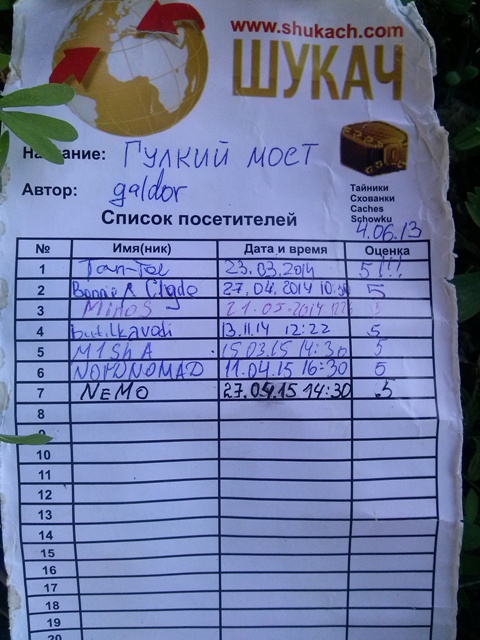 www.shukach.com
ШУКАЧ
Название: Гулкий мост
Автор: galdor
Тайники
Схованки
Caches
Schowku
4.06.13
Список посетителей
№ Имя(ник) Дата и время Оценка
1 23.03.2014 5!!!
2 Bonnie & Clyde 27.04.2014 5
3 MinoS 21.05.2014
4 butilkavodi 13.11.14 12:22 5
5 M1ShA 15.03.15 14:30 5
6 NOMONOMAD 11.04.15 16:30 5
7 NeMO 27.04.15 14:30 5
8
9
10
11
12
13
14
15
16
17
18
19
20